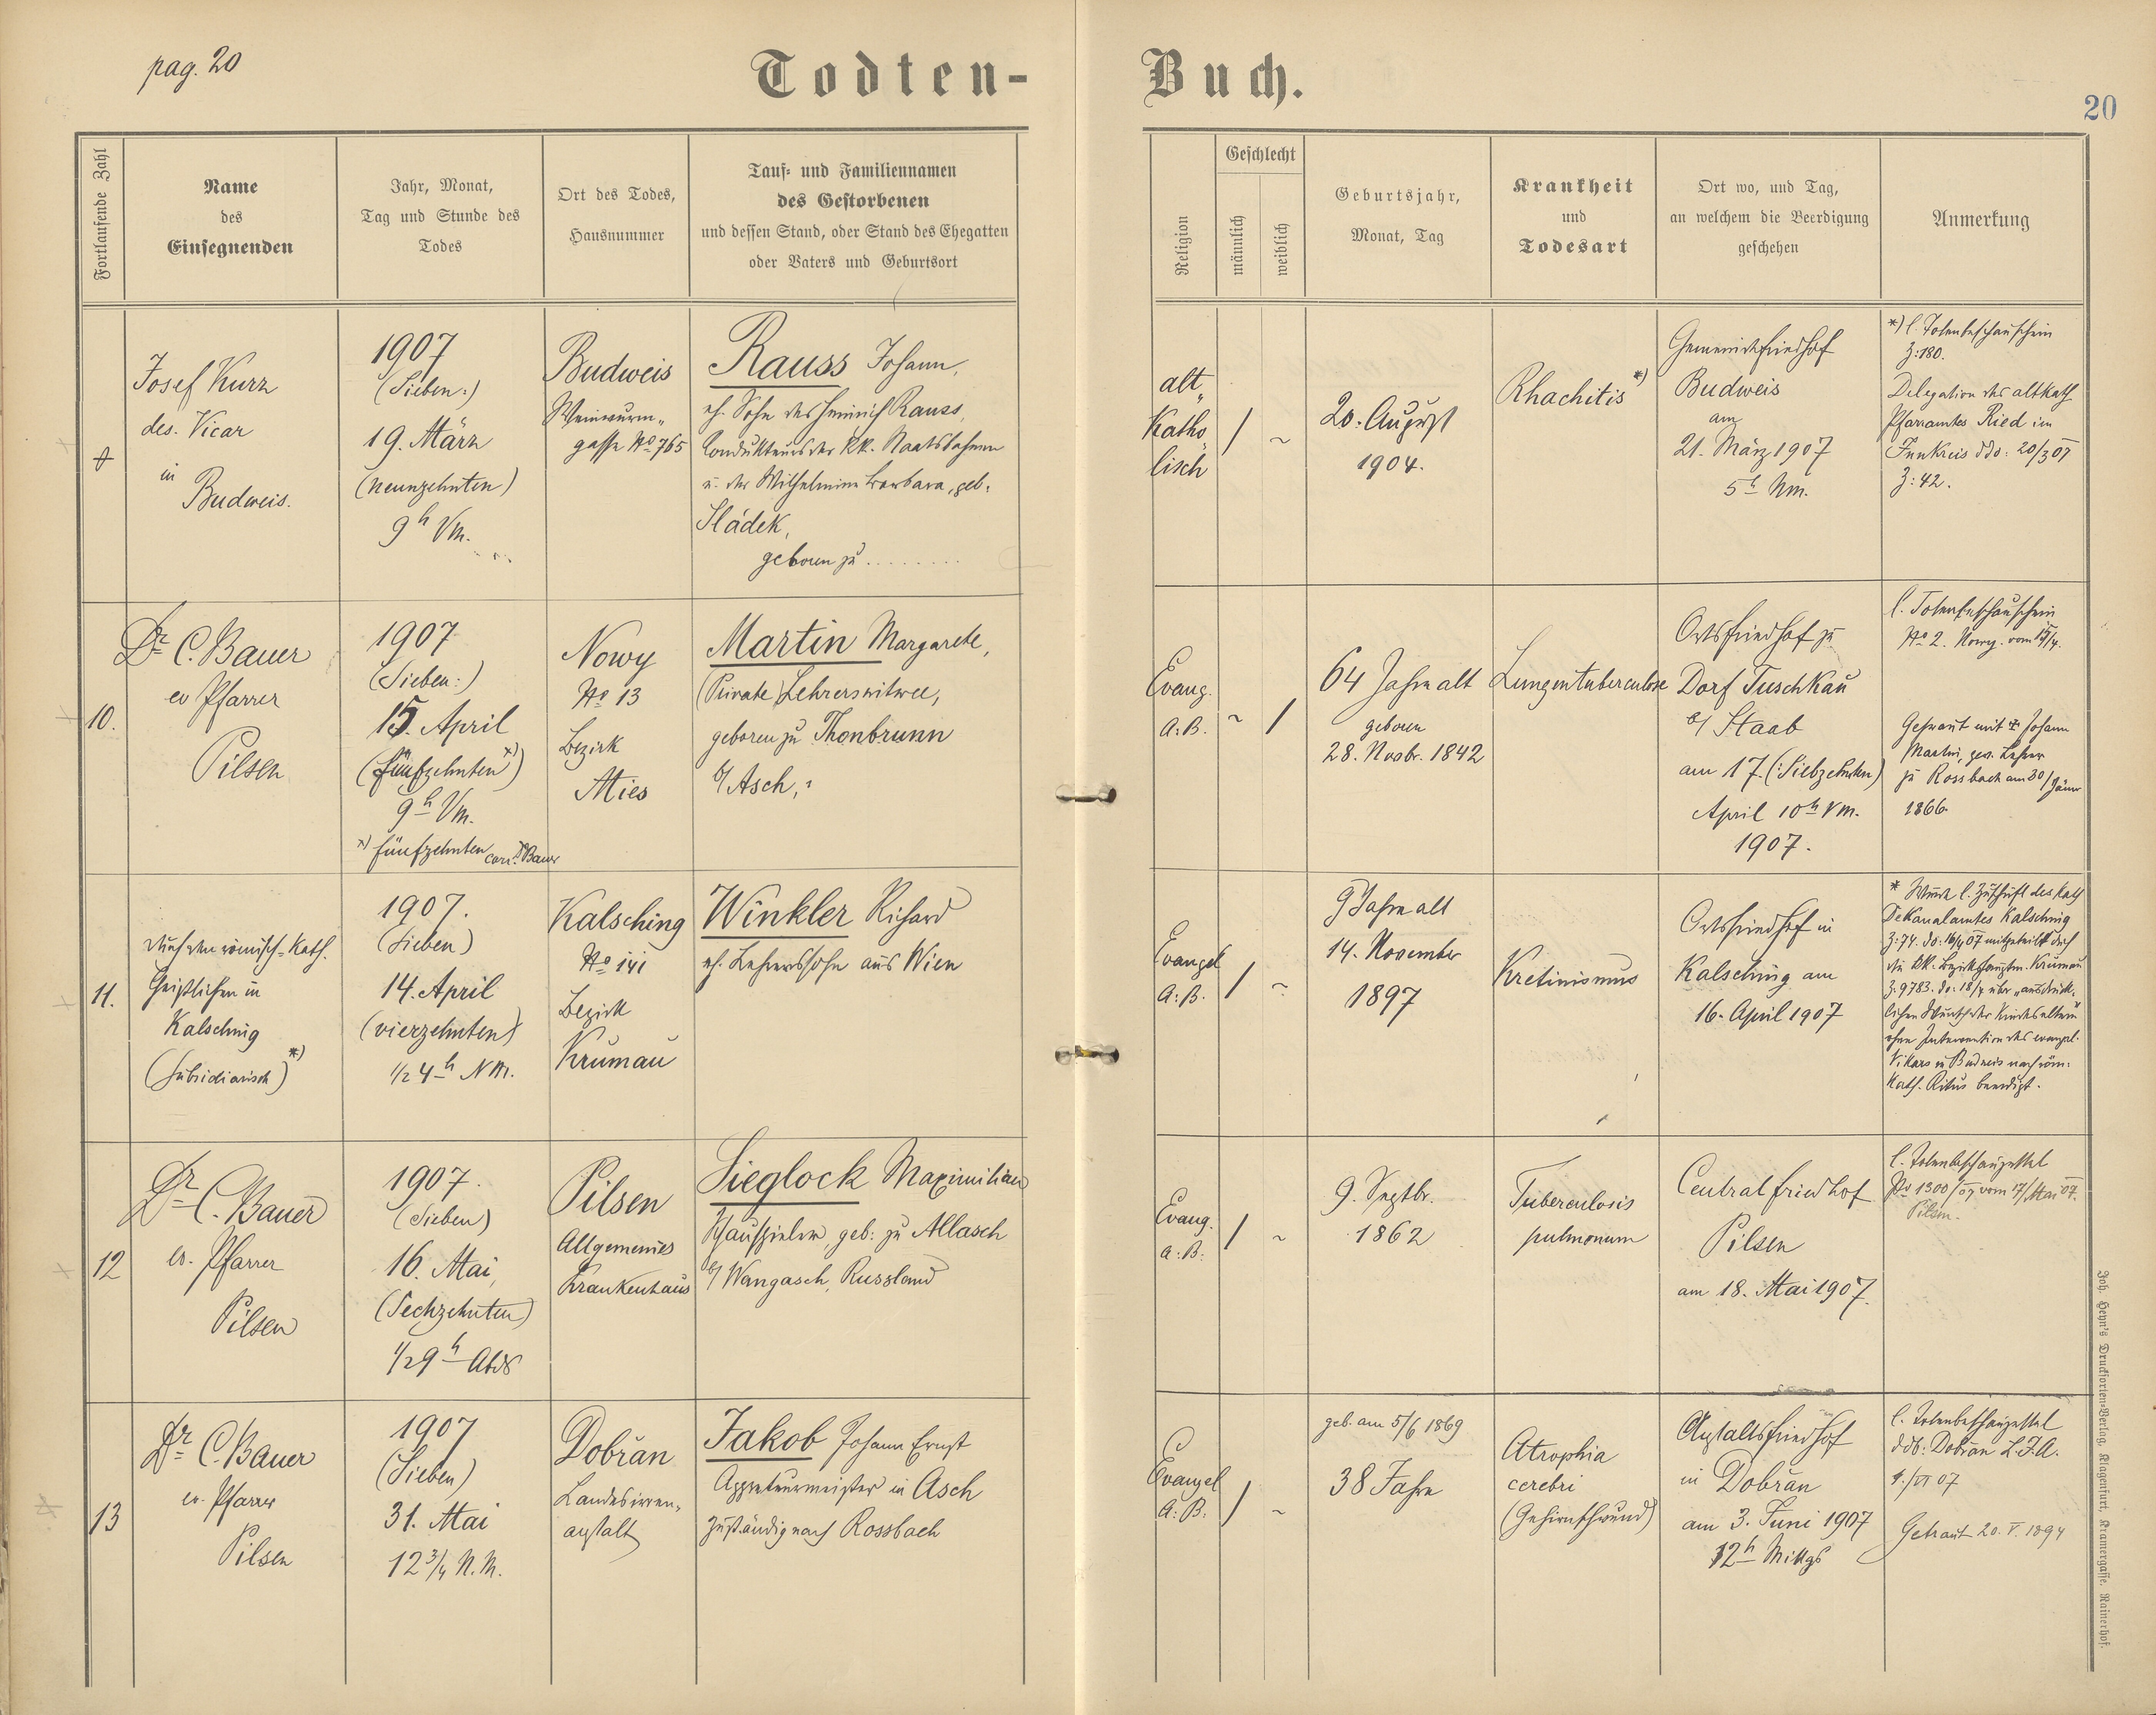 pag. 20
Todten-
Buch.
20
Fortlaufende Zahl
Name
des
Einsegnenden
Jahr, Monat,
Tag und Stunde des
Todes
Ort des Todes,
Hausnummer
Tauf- und Familiennamen
des Gestorbenen
und dessen Stand, oder Stand des Ehegatten
oder Vaters und Geburtsort
Religion
Geschlecht
männlich
weiblich
Geburtsjahr,
Monat, Tag
Krankheit
und
Todesart
Ort wo, und Tag,
an welchem die Beerdigung
geschehen
Anmerkung
Josef Kurz
des. Vicar
in
Budweis.
1907
(Sieben:)
19. März
(neunzehnten)
9h Vm.
Budweis
gasse No 765
Rauss Johann,
eh. Sohn des Heinrich Rauss,
Condukteurs der kk. Staatsbahnen
u. der Wilhelmine Barbara, geb.
Sládek,
geboren zu ........
alt„
Katho„
lisch
/ ~
20. August
1904.
Rhachitis *)
Gemeindefriedhof
Budweis
am
21. März 1907
5h Nm.
*) l. Totenbeschauschein
Z: 180.
Delegation des altkath
Pfarramtes Ried im
Innkreis ddo: 20/3 07
Z: 42.
10.
Dr C. Bauer
ev Pfarrer
Pilsen
1907
(Sieben:)
15. April
(fünfzehnten *))
9h Vm.
*) fünfzehnten corr. Dr Bauer
Nowy
No 13
Bezirk
Mies
Martin Margarete,
(Private) Lehrerswitwe,
geboren zu Thonbrunn
b/ Asch,
Evang.
A: B.
~ /
64 Jahre alt
geboren
28. Novbr. 1842
Lungentuberculose
Ortsfriedhof zu
Dorf Tuschkau
b/ Staab
am 17. (:Siebzehnten)
April 10h Vm.
1907.
l. Totenbeschauschein
No 2. Nowy. vom 15/4.
Getraut mit Johann
Martin, gew. Lehrer
zu Rossbach am 30/Jänner
1866
11.
Durch den römisch-kath.
Geistlichen in
Kalsching
(subsidiarisch) *)
1907.
(Sieben)
14. April
(vierzehnten)
1/2 4h NM.
Kalsching
No 141
Bezirk
Krumau
Winkler Richard
eh. Lehrerssohn aus Wien
Evangel
A: B.
/ ~
9 Jahre alt
14. November
1897
Kretinismus
Ortsfriedhof in
Kalsching am
16. April 1907
* Wurde l. Zuschrift des kath
Dekanalamtes Kalsching
Z: 74. do: 16/4 07 mitgeteilt dch
die kk. Bezirkshauptm. Krumau
Z: 9783. do: 18/4 über „ausdrück-
lichen Wunsch der Kindeseltern"
ohne Intervention des evangel.
Vikars in Budweis nach röm:
kath. Ritus beerdigt.
12
Dr C. Bauer
ev. Pfarrer
Pilsen
1907.
(Sieben)
16. Mai,
(Sechzehnten)
1/2 9h Abds
Pilsen
Allgemeines
Krankenhaus
Sieglock Maximilian
Schauspieler, geb: zu Allasch
b/ Wangasch, Russland
Evang.
A: B:
/ ~
9. Septbr.
1862
Tuberculosis
pulmonum
Centralfriedhof
Pilsen
am 18. Mai 1907.
l. Totenbeschauzettel
No 1300/07 vom 17/Mai 07.
Pilsen.
13
Dr C. Bauer
ev. Pfarrer
Pilsen
1907
(Sieben)
31. Mai
12 3/4 N. M.
Dobřan
Landesirren„
anstalt
Jakob Johann Ernst
Appreteurmeister in Asch
Zuständig nach Rossbach
Evangel
A: B.
/ ~
geb. am 5/6 1869
38 Jahre
Atrophia
cerebri
(Gehirnschwund)
Anstaltsfriedhof
in Dobřan
am 3. Juni 1907
12h Mittgs
l. Totenbeschauzettel
ddo: Dobřan L. I. A.
1./VI 07
Getraut 20. V. 1894
Joh. Heyn's Drucksorten-Verlag, Klagenfurt, Kramergasse. Rainerhof.